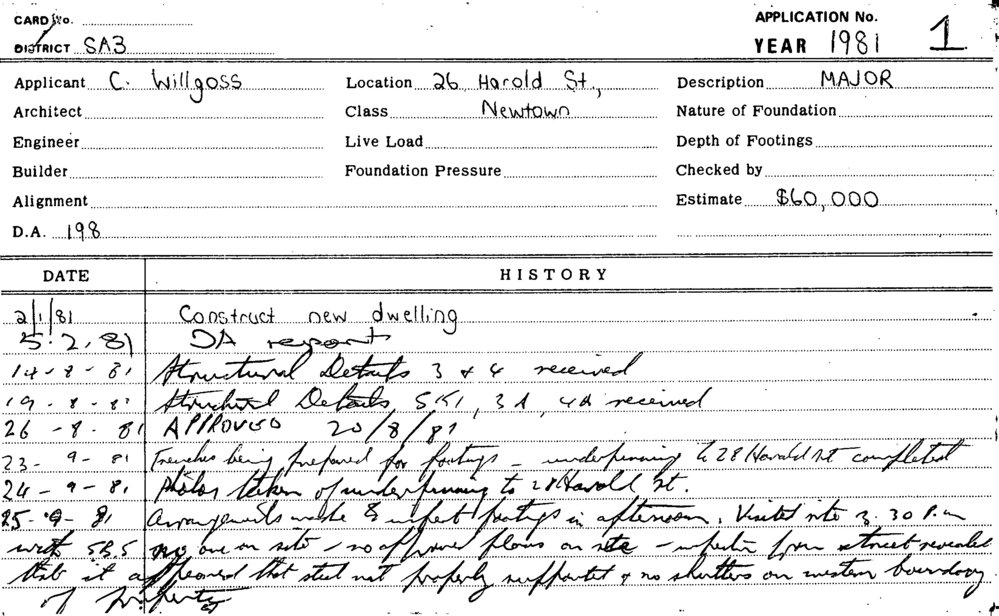 CARD No.
APPLICATION No.
DISTRICT SA3
YEAR 1981 1
Applicant C. Willgoss Location 26 Harold St., Description MAJOR
Architect Class Newtown Nature of Foundation
Engineer Live Load Depth of Footings
Builder Foundation Pressure Checked by
Alignment Estimate $60,000
D.A. 198
DATE HISTORY
2/1/81 Construct new dwelling
5.2.81 DA report
14-8-81 Structural Details 3 & 4 received
19-8-81 Structural Details SK1, 3A, 4A received
26-8-81 APPROVED 20/8/81
23-9-81 Trenches being prepared for footings - underpinning to 28 Harold St completed
24-9-81 Photos taken of underpinning to 28 Harold St.
25-9-81 Arrangements made to inspect footings in afternoon. Visited site 3.30 P.m
with no one on site - no approved plans on site - inspection from street revealed
that it appeared that steel not properly supported & no shutters on western boundary
of property